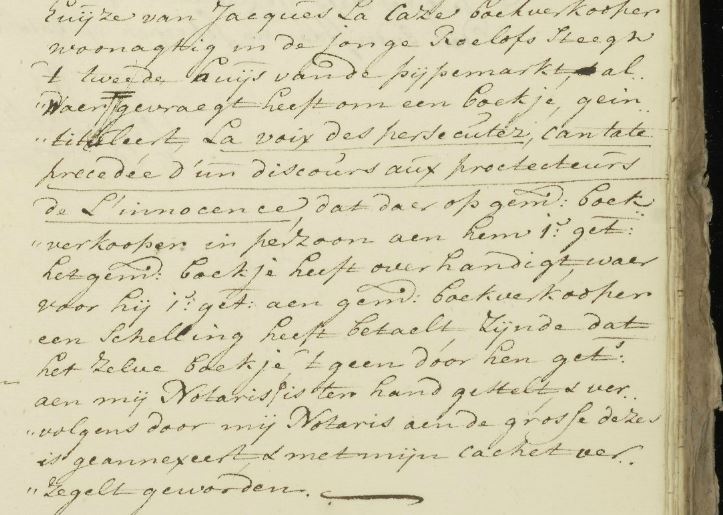 huijze van Jacques La Caze boekverkooper
woonagtig in de jonge Roelofs Steegh
't tweede huijs van de pijpemarkt, al„
„daer gevraegt heeft om een boekje, gein„
„tituleert, La voix des persecutéz, cantate
precedée d'un discours aux proctecteurs
de L'innocence, dat daer op gem̃: boek
„verkooper in perzoon aen hem 1e get:
het gem̃: boekje heeft overhandigt, waer
voor hij 1e get: aen gem̃: boekverkooper
een Schelling heeft betaelt, zijnde dat
het zelve boekje 't geen door hen gets:
aen mij Notaris is ter hand gestelt & ver„
„volgens door mij Notaris aen de grosse dezes
is geannexeert, & met mijn cachet ver„
„zegelt geworden.